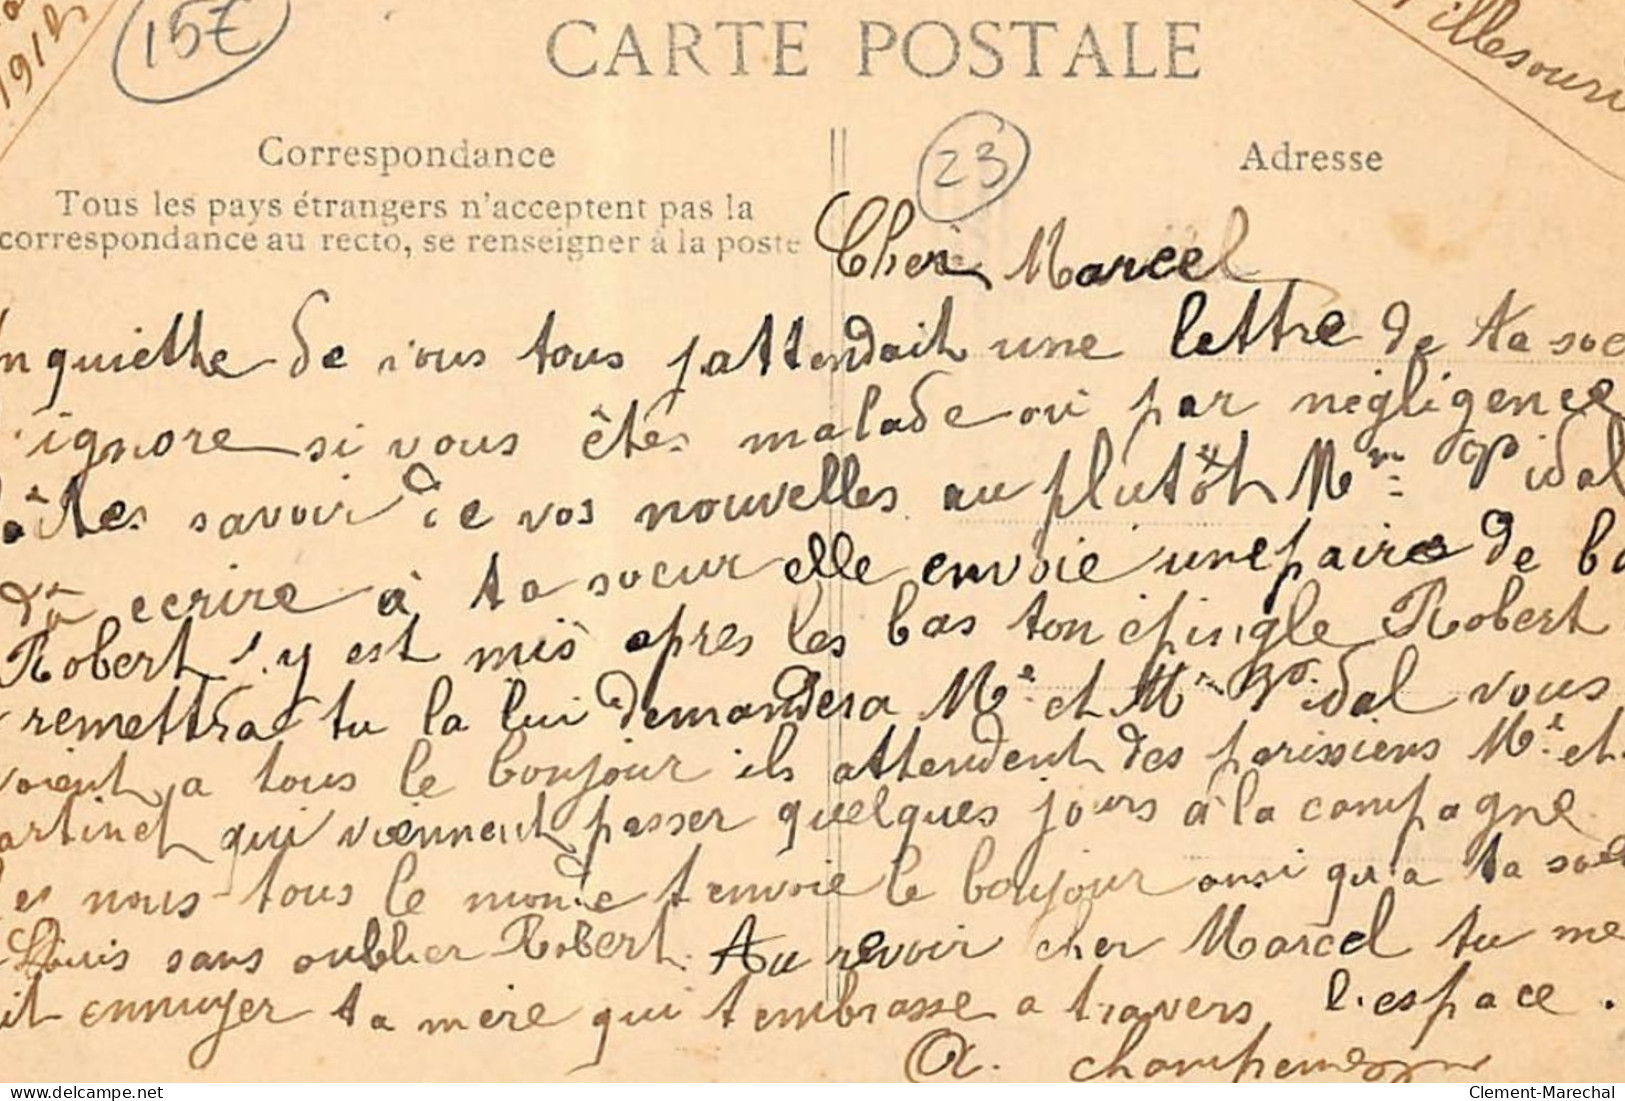 1912
15€
CARTE POSTALE
Villesouri
Correspondance
23
Adresse
Tous les pays étrangers n'acceptent pas la
correspondance au recto, se renseigner à la poste
Cher Marcel
nquiethe de vous tous jattendait une lettre de ta soe
ignore si vous êtes malade ou par négligence
aites savoir de vos nouvelles au plutôt Mme Vidal
dû ecrire à ta soeur elle envoie une paire de ba
Robert s'y est mis apres les bas ton epingle Robert
remettra tu la lui demandera Mr et Mme Vidal vous
voient a tous le bonjour ils attendent des parissiens Mr et
artinet qui viennent passer quelques jours à la compagne
es nous tous le monde tenvoie le bonjour ansi qu'a ta soe
Louis sans oublier Robert. Au revoir cher Marcel tu me
it ennuyer ta mère qui tembrasse a travers l'espace.
A.
www.delcampe.net
Clement-Marechal